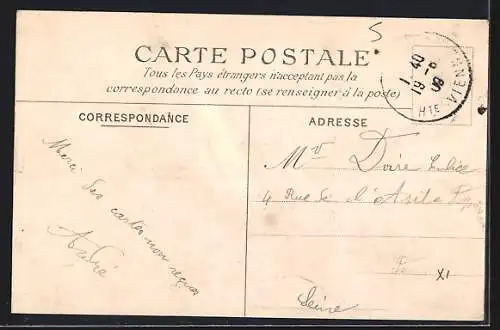 5
CARTE POSTALE
Tous les Pays étrangers n'acceptant pas la
correspondance au recto (se renseigner à la poste)
1 40
19 - 6
09
HTE VIENN
CORRESPONDANCE
ADRESSE
Merci des cartes non reçues
André
Mr Doire
4 Rue de l'Asile
XI
Seine